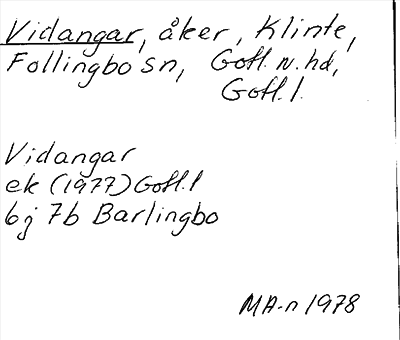 Vidangar, åker, Klinte,
Follingbo sn, Gotl. n. hd,
Gotl. l.
Vidangar
ek (1977) Gotl. l
6j 7b Barlingbo
MA-n 1978